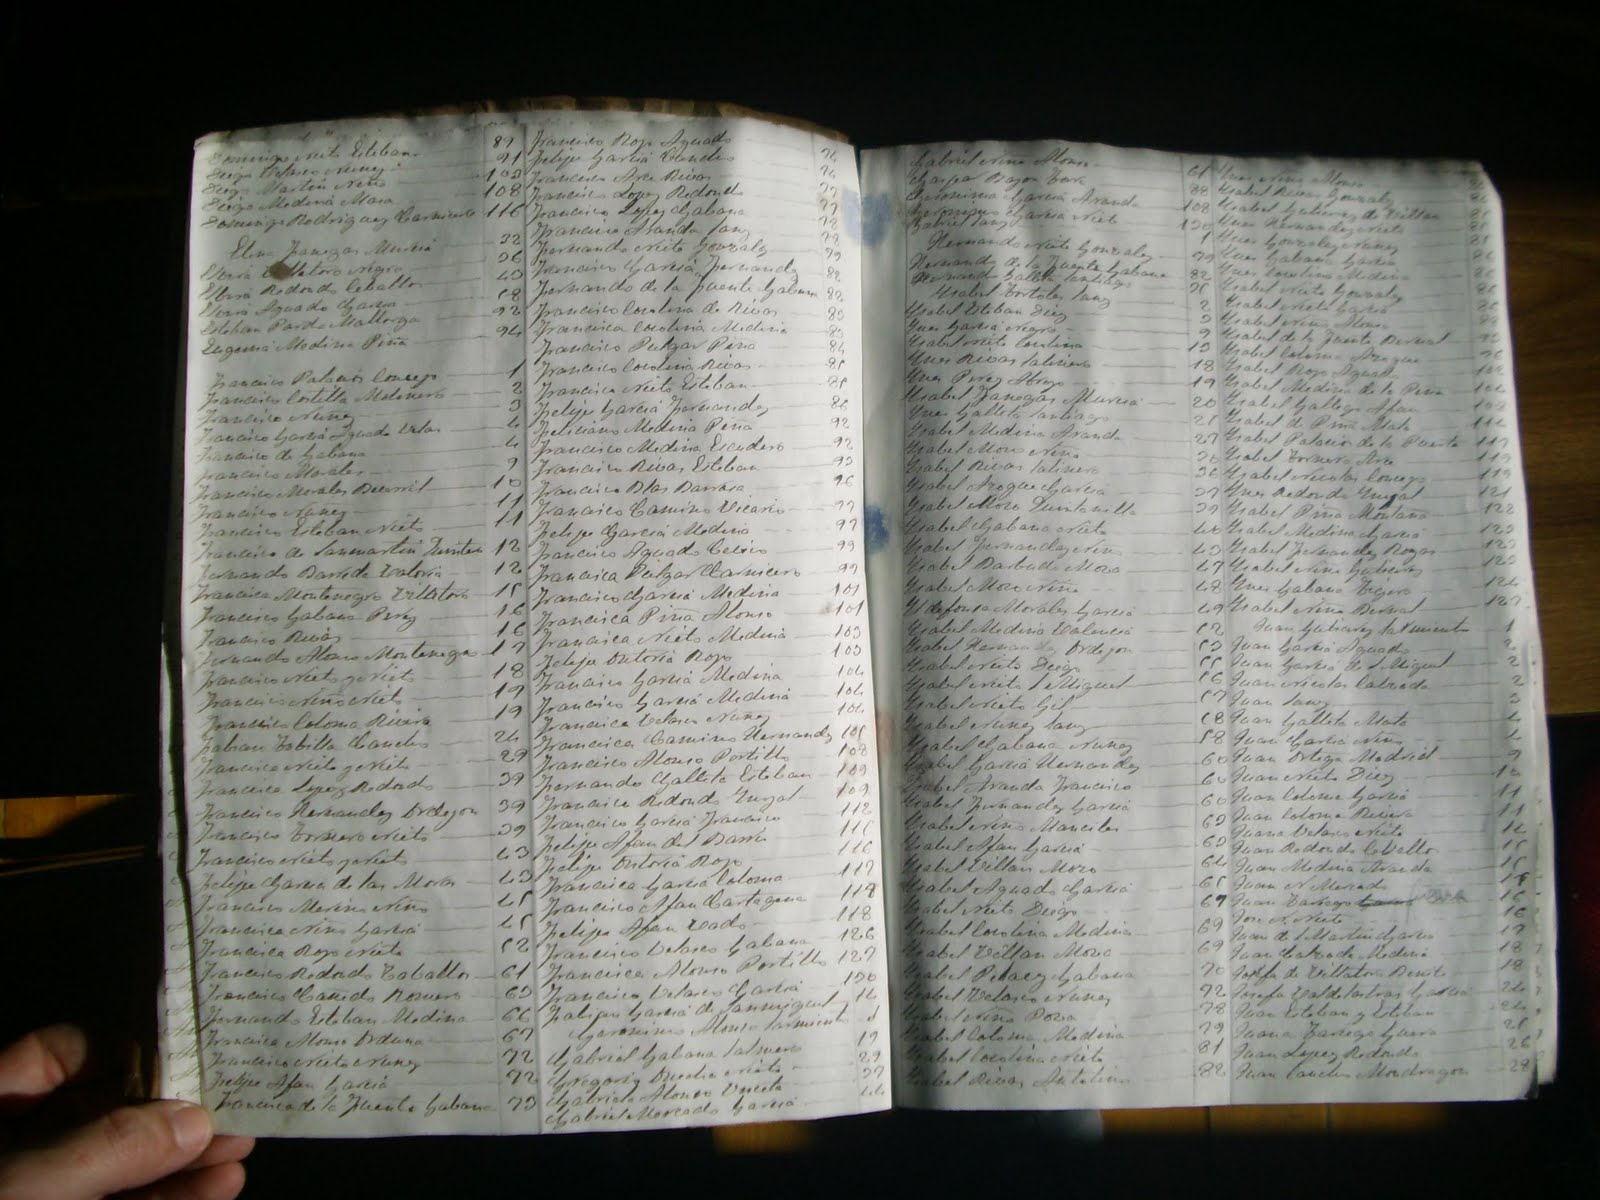 Domingo Nieto Esteban 89
Diego Velasco Nuñez 91
Diego Martin Niño 102
Diego Medina Masa 108
Domingo Rodriguez Carnicero 116
Elena Franegas Murcia 32
Villatoro Negro 36
Redondo Ceballos 40
Aguado Garcia 68
Esteban Pardo Mallorga 92
Eugenia Medina Piña 94
Francisco Palacios Conejo 1
Francisco Costilla Molinero 2
Francisco Nuñez 3
Francisco Garcia Aguado 4
Francisco de Gabana 4
Francisco Morales 9
Francisco Morales Becerril 10
Francisco Nuñez 11
Francisco Esteban Nieto 11
Francisco de Sanmartin 12
Fernando 12
Francisca Montenegro Villatoro 15
Francisco Gabana Perez 16
Francisco Rivas 16
Fernando Alonso Montenegro 17
Francisco Nieto y Nieto 18
Francisco Niño Nieto 19
Francisco Coloma Rivera 19
Fabian Canelas 24
Francisca Nieto y Nieto 29
Francisca Lopez Redondo 39
Francisco Hernandez Ordejon 39
Francisco Tornero Nieto 39
Francisco Nieto y Nieto 43
Felipe Garcia de las Moras 43
Francisco Merino Niño 45
Francisca Niño Garcia 45
Francisca Rojo Nieto 52
Francisco Redondo Caballo 61
Francisco Cañedo Romero 63
Fernando Esteban Medina 66
Francisca Alonso Orduna 67
Francisco Nieto Nuñez 72
Felipe Afan Garcia 72
Francisca de la Fuente Gabana 73
Francisco Rojo Aguado
Felipe Garcia 76
Francisco Arce Rivas 76
Francisco Lopez Redondo 77
Francisco Lopez Gabana 77
Francisco Aranda Sanz 78
Fernando Nieto Gonzalez 78
Francisco Garcia Fernandez 79
Fernando de la Fuente Gabana 82
Francisco Cocolina de Rivas 82
Francisca Cocolina Medina 83
Francisco Pulgar Peña 83
Francisco Cocolina Rivas 84
Francisca Nieto Esteban 85
Felipe Garcia Fernandez 85
Feliciano Medina Peña 86
Francisca Medina Escudero 92
Francisco Rivas Esteban 92
Francisco Blas Barrasa 93
Francisco Camino Vicario 96
Felipe Garcia Medina 97
Francisco Aguado 97
Francisca Pulgar Carnicero 99
Francisco Garcia Medina 99
Francisca Piña Alonso 101
Francisca Nieto Medina 101
Felipe Ontoria Rojo 103
Francisco Garcia Medina 103
Francisco Garcia Medina 104
Francisca Velasco Nuñez 104
Francisca Camino Hernandez 104
Francisco Alonso Portillo 105
Fernando Galleta Esteban 108
Francisca Redondo 109
Francisco Garcia Francisco 109
Felipe Afan del Barrio 112
Felipe Ontoria Rojo 116
Francisca Garcia Coloma 116
Francisco Afan Cartagena 117
Felipe Afan 118
Francisco Velasco Gabana 118
Francisca Alonso Portillo 126
Francisco Velasco Garcia 127
Felipe Garcia de Sanmiguel 130
Geronimo Alonso Sarmiento
Gabriel Gabana 19
Gregorio Nieto 29
Gabriela Alonso 37
Gabriel Mercado Garcia 44
Gabriel Niño Alonso 61
Gaspar 88
Geronima Garcia Aranda 108
Geronimo Garcia Nieto 130
Gabriel Sanz
Hernando Nieto Gonzalez 1
Hernando de la Fuente Gabana 79
Hernando Galleta Santiago 82
Ysabel Tortoles Sanz
Ysabel Esteban Diez 2
Ynes Garcia Negro 3
Ysabel Nieto Cocolina 9
Ynes Rivas Salinero 13
Ynes Perez 18
Ysabel Franegas Murcia 19
Ynes Galleta Santiago 20
Ysabel Medina Aranda 21
Ysabel Mozo Niño 27
Ysabel Rivas Salinero 36
Ysabel Azogue Garcia 36
Ysabel Mozo Quintanilla 37
Ysabel Gabana Nieto 39
Ysabel Fernandez Niño 40
Ysabel Barbado Mozo 43
Ysabel Mozo Niño 47
Yldefonsa Morales Garcia 48
Ysabel Medina Valencia 49
Ysabel Hernandez Ordejon 52
Ysabel Nieto Diego 53
Ysabel Nieto S Miguel 55
Ysabel Nieto Gil 56
Ysabel Nuñez Sanz 57
Ysabel Gabana Nuñez 58
Ysabel Garcia Hernandez 58
Ysabel Aranda Francisco 60
Ysabel Fernandez Garcia 60
Ysabel Niño Mancilas 60
Ysabel Afan Garcia 63
Ysabel Villan Mozo 63
Ysabel Aguado Garcia 64
Ysabel Nieto Diego 65
Ysabel Cocolina Medina 67
Ysabel Villan Mozo 69
Ysabel Pelaez Gabana 69
Ysabel Velasco Nuñez 70
Ysabel Niño Poza 72
Ysabel Coloma Medina 78
Ysabel Cocolina Nieto 79
Ysabel Rivas Antolino 81
82
Ynes Niño Alonso
Ysabel Rivas Gonzalez
Ysabel Gutierrez de Villan
Ynes Hernandez Nieto
Ynes Gonzalez Nuñez
Ynes Gabana Garcia
Ynes Cocolina Medina
Ysabel Nieto Gonzalez
Ysabel Nieto Garcia
Ysabel Niño Alonso
Ysabel de la Fuente Bernal
Ysabel Coloma Azogue
Ysabel Rojo Aguado
Ysabel Medina de la Peña
Ysabel Gallego Afan
Ysabel de Piña Mata
Ysabel Palacio de la Puerta 117
Ysabel Tornero Arce 119
Ysabel Nicolas Conejo 119
Ynes Redondo 121
Ysabel Piña Montaña 122
Ysabel Medina Garcia 123
Ysabel Fernandez Rojas 123
Ysabel Niño Gutierrez 123
Ynes Gabana Tejero 124
Ysabel Niño Bernal 127
Juan Gutierrez Sarmiento 1
Juan Garcia Aguado 2
Juan Garcia de S Miguel 2
Juan Nicolas Calzada 2
Juan Sanz 3
Juan Galleta Mata 4
Juan Garcia Niño 4
Juan Ortega Madrid 9
Juan Nieto Diez 10
Juan Coloma Garcia 11
Juan Coloma Rivera 11
Juana Velasco Nieto 14
Juan Redondo Cavallo 15
Juan Medina Aranda 15
Juan N Mercado 15
Juan Barrego 16
Jose N Nieto 16
Juan de S Martin Garcia 17
Juan Calzada Medina 18
Josefa de Villatoro Benito 18
Josefa Valdelastras Garcia 24
Juan Esteban y Esteban 24
Juana Barrego Guerra 25
Juan Lopez Redondo 26
Juan Canelas Mondragon 28